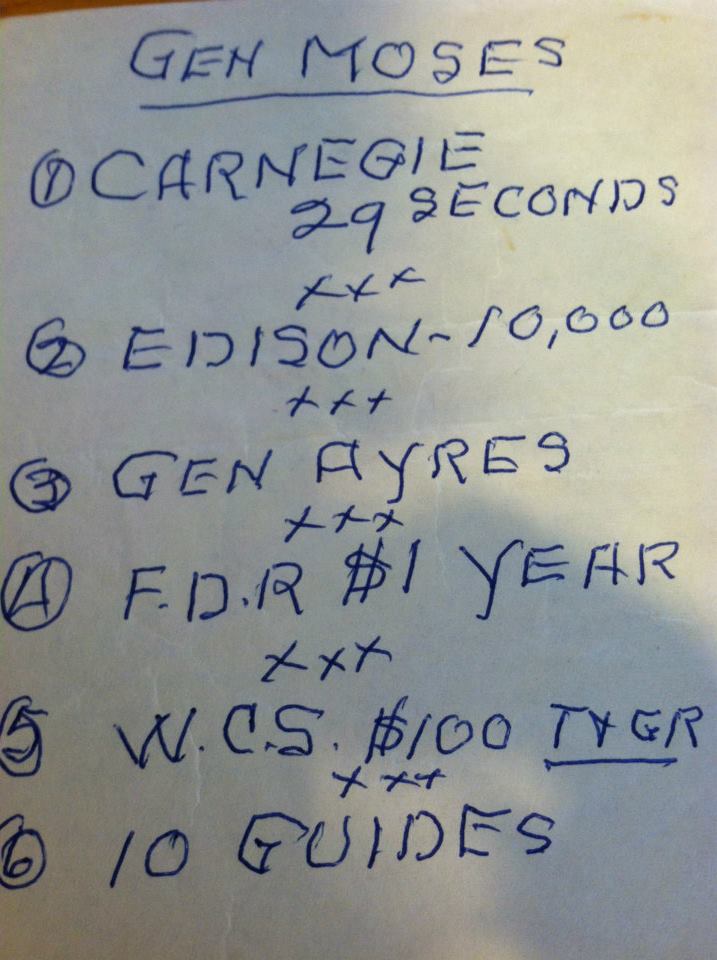 GEN MOSES
① CARNEGIE
29 SECONDS
xxx
② EDISON - 10,000
xxx
③ GEN AYRES
xxx
④ F.D.R $1 YEAR
xxx
⑤ W.C.S. $100 T&GR
xxx
⑥ 10 GUIDES